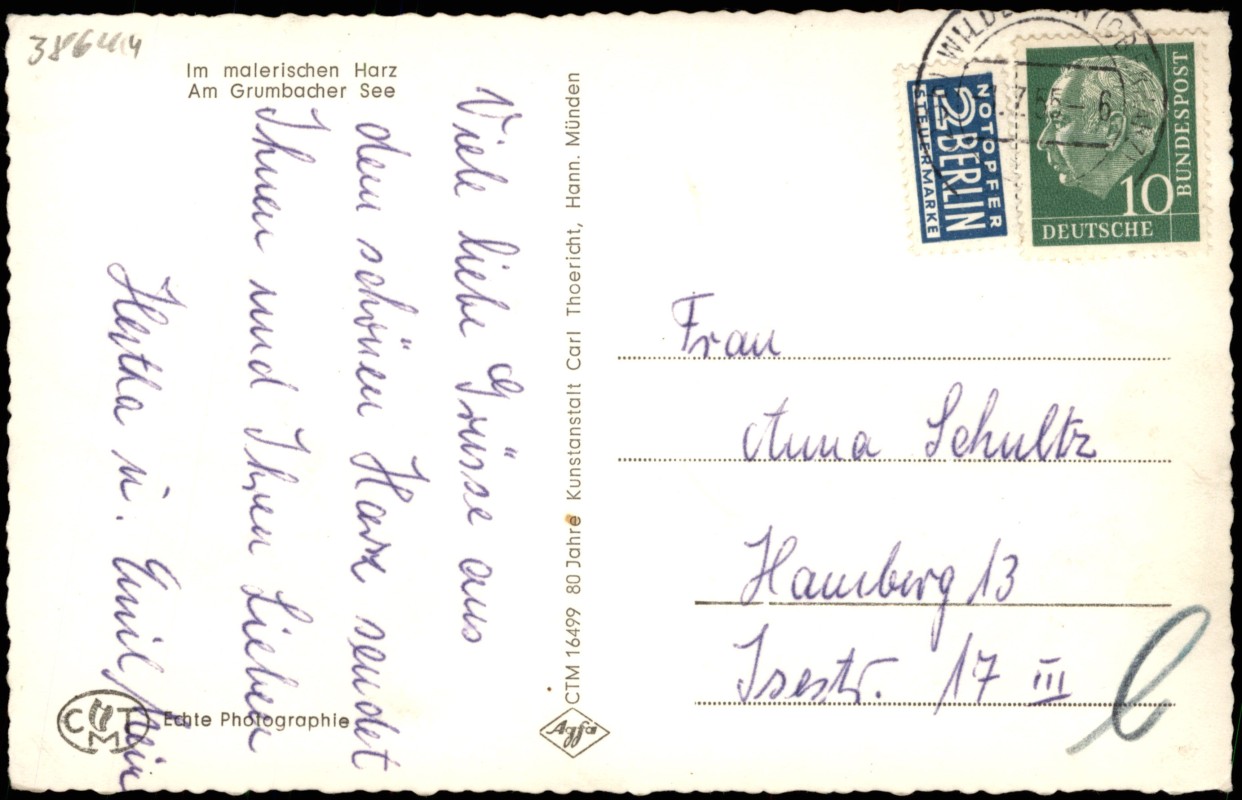 38644
Im malerischen Harz
Am Grumbacher See
Viele liebe Grüsse aus
dem schönen Harz sendet
Ihnen und Ihren Lieben
Hertha u. Emil
Echte Photographie
CTM
CTM 16499 80 Jahre Kunstanstalt Carl Thoericht, Hann. Münden
Agfa
NOTOPFER
2 BERLIN
STEUERMARKE
7.55 - 6
10
DEUTSCHE
BUNDESPOST
Frau
Anna Schultz
Hamburg 13
Isestr. 17 III